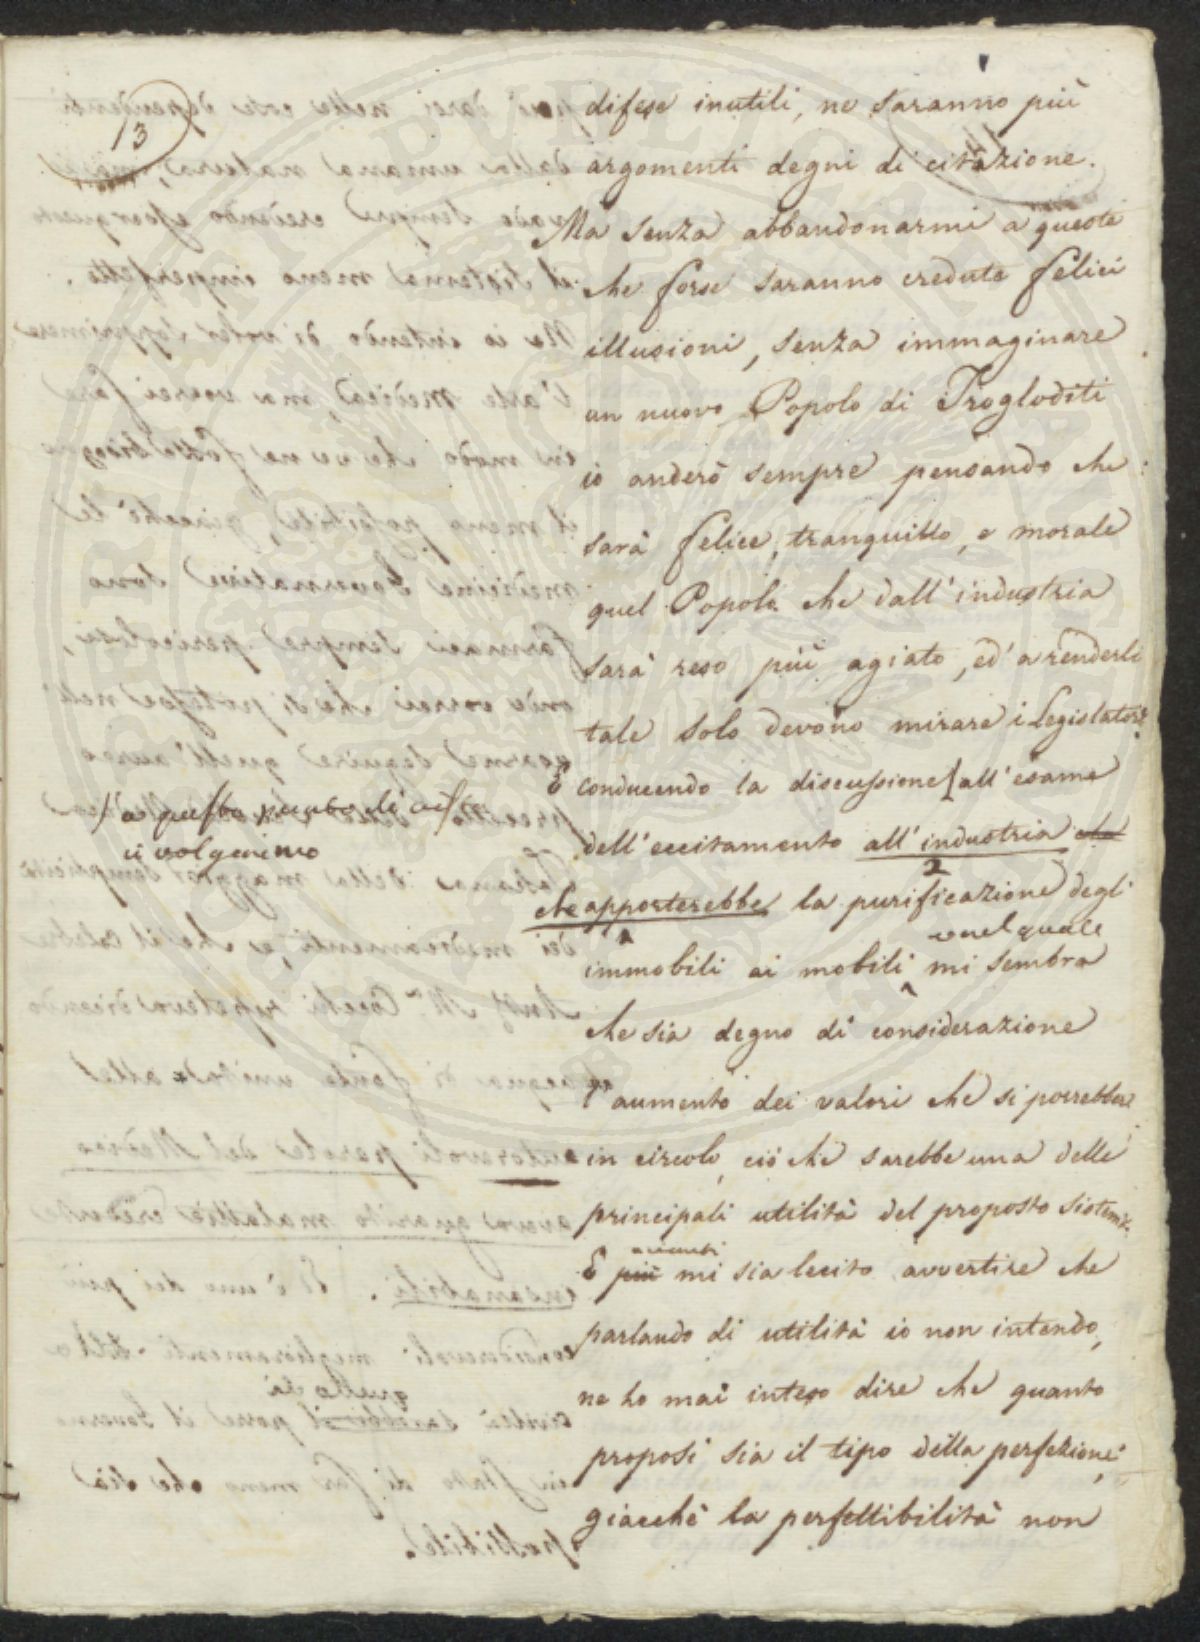 13
difese inutili, ne saranno più
argomenti degni di citazione.
Ma senza abbandonarmi a queste
che forse saranno credute felici
illusioni, senza immaginare
un nuovo Popolo di Trogloditi
io anderò sempre pensando che
sarà felice, tranquillo, e morale
quel Popolo che dall'industria
sarà reso più agiato, ed a renderlo
tale solo devono mirare i Legislatori.
E conducendo la discussione all'esame
a questo punto di
ci volgeremo
dell'eccitamento all'industria che
2
che apporterebbe la purificazione degli
nel quale
immobili ai mobili mi sembra
che sia degno di considerazione
l'aumento dei valori che si porrebbero
in circolo, ciò che sarebbe una delle
principali utilità del proposto sistema.
E più mi sia lecito avvertire che
parlando di utilità io non intendo,
ne ho mai inteso dire che quanto
proposi sia il tipo della perfezione,
giacchè la perfettibilità non